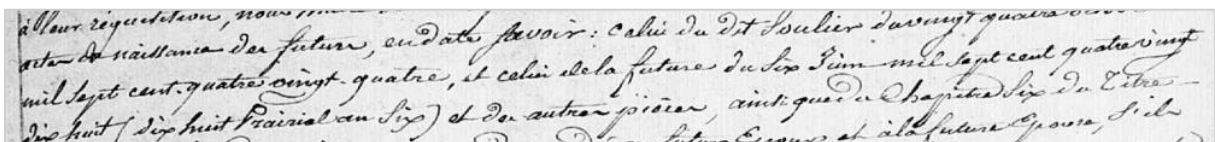 à leur réquisition, nous
actes de naissance des futurs, en date savoir: celui du dit Soulier du vingt quatre
mil sept cent-quatre vingt-quatre, et celui de la future du six Juin mil sept cent quatre vingt
dix huit (dix huit Prairial an Six) et des autres pièces, ainsi que du Chapitre Six du Titre
futur Epoux et à la future Epouse, s'ils